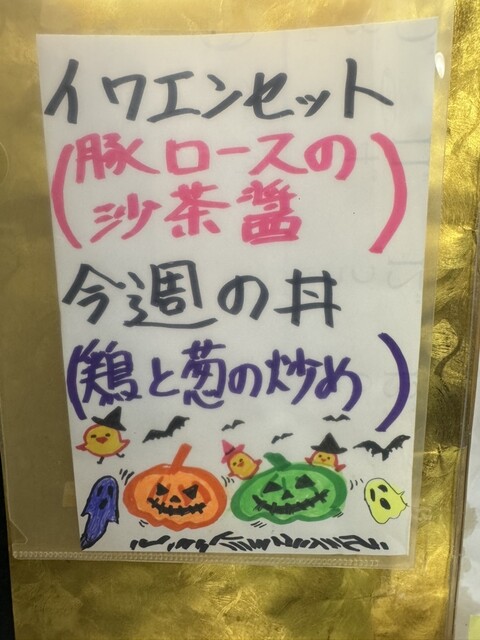 イワエンセット
(豚ロースの
沙茶醤)
今週の丼
(鶏と葱の炒め)